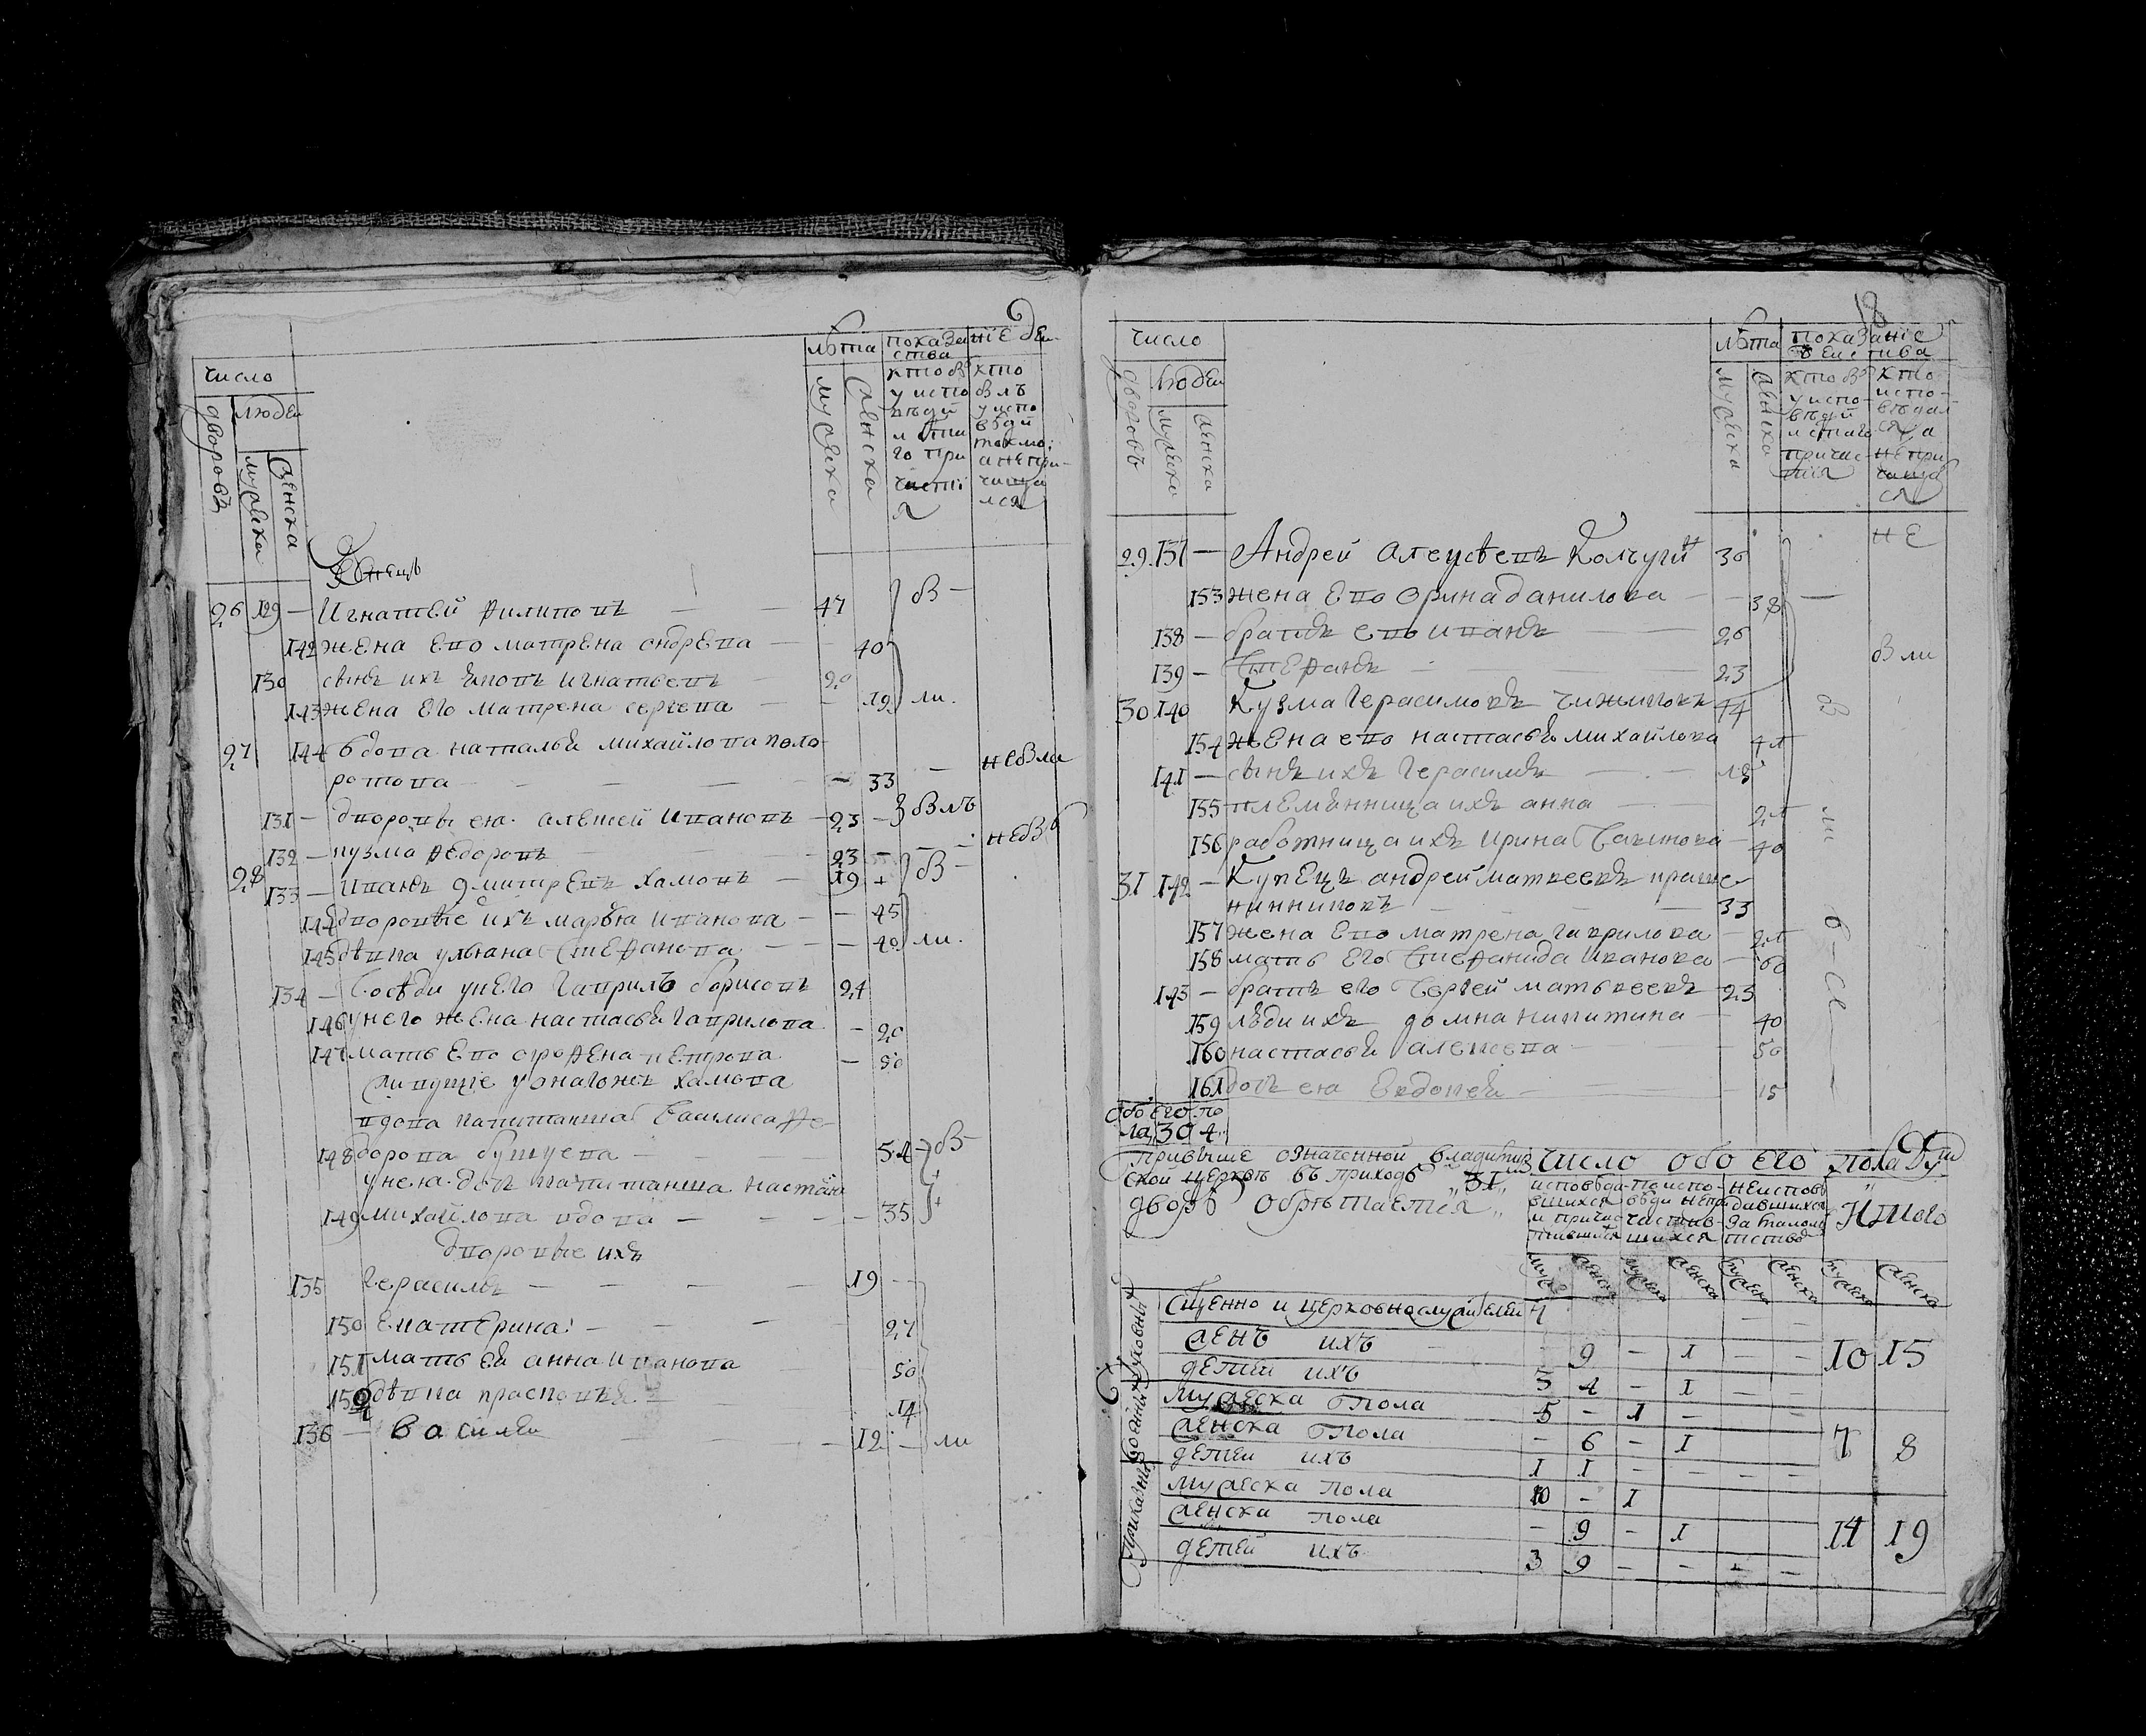 число
лѣта показаніе деи-
ства
дворовъ людеи
мужска женска
мужска женска
кто бы
у испо
вѣди
и святаго
при
части
я
кто
былъ
у испо
вѣди
токмо
а непри-
чаща
лся
Купецъ
26 129 — Игнатеи Филиповъ — — 47 } бы —
142 жена ево матрена андрева — 40
130 сынъ ихъ яковъ игнатьевъ — 20
143 жена его матрена сергева — — 19 ли.
27 144 вдова наталья михайлова поло-
ротова — — — — 33 — не были
131 — дворовы ея алексей ивановъ — 23 — } былъ
132 — кузма федоровъ — — 23 — — не бы
28 133 — иванъ дмитревъ хамовъ — 19 } бы —
144 дворовые ихъ марья иванова — — 45
145 дѣвка ульяна стефанова — — — 40 ли.
134 — Сосѣди у него гаврилъ борисовъ 24
146 у него жена настасья гаврилова — 20
147 мать ево аграфена петрова — 50
живущие у онагожъ хамова
вдова капитанша василиса фе-
148 дорова бутуева — — — 54 } бы
у нея дочь капитанша настасья
149 михайлова вдова — — — — 35
дворовые ихъ
135 герасимъ — — — — 19
150 екатерина — — — 27
151 мать ей анна иванова 50
152 дѣвка прасковья — 14
136 — василеи — 12 — ли
18
число
лѣта показаніе
деиства
дворовъ людеи
мужска женска
мужска женска
кто бы
у испо-
вѣди
и святаго
причас-
тия
кто
испо-
вѣдал
ся, а
не при
чаща
ся
29 137 — Андрей алексѣевъ Колчугин 36 не
153 жена ево орина данилова — — 38 —
138 — братъ ево иванъ — 26
139 — Стефанъ — — 23 были
30 140 Кузма герасимовъ чижиковъ 44 бы
154 жена ево настасья михайлова 41
141 — сынъ ихъ герасимъ — — 15
155 племянница ихъ анна — 21 ли
156 работница ихъ ирина — 40
31 142 — Купецъ андрей матвеевъ краше-
нинниковъ — — — 33
157 жена ево матрена гаврилова — 21
158 мать его стефанида иванова — 60
143 — братъ его сергей матьвеевъ — 23
159 люди ихъ домна никитина — 40
160 настасья алексева — 50
161 дочь ея евдокея — — 15
обоего по
ла 304
Привыше означенной владимир
ской церквѣ въ приходѣ 31
дворѣ обрѣтается
число обоего пола душъ
исповѣда-
вшихся
и причас
тившихся
по испо-
вѣди непри
частив-
шихся
не испов
давшихся
за малол
тство
Итого
мужска женска мужска женска мужска женска мужска женска
духовныхъ
Сщенно и церковнослужителеи 4 — —
женъ ихъ — 9 — 1 — — 10 15
детеи ихъ 5 4 — 1 —
военныхъ
мужеска пола 5 — 1 — —
женска пола — 6 — 1 7 8
детеи ихъ 1 1 — — — —
приказныхъ
мужеска пола 10 — 1
женска пола — 9 — 1 14 19
детей ихъ 3 9 — — — —